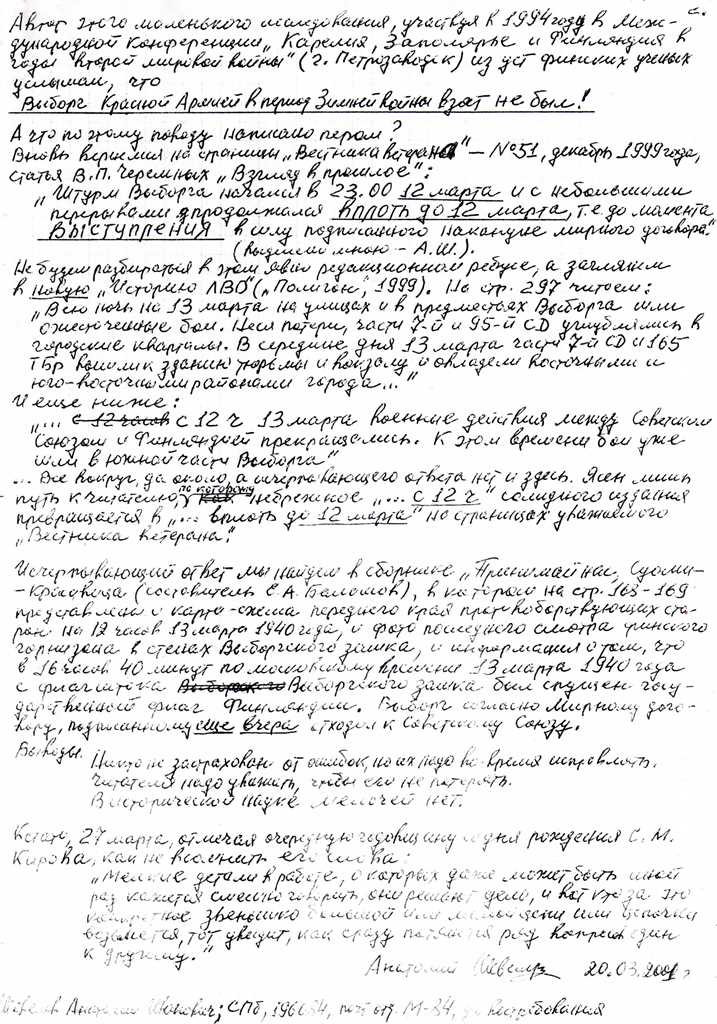 Автор этого маленького исследования, участвуя в 1994 году в Меж-
дународной конференции „Карелия, Заполярье и Финляндия в
годы второй мировой войны" (г. Петрозаводск) из уст финских ученых
услышал, что
Выборг Красной Армией в период Зимней войны взят не был!
А что по этому поводу написано пером?
Вновь вернемся на страницы „Вестника ветерана" – №51, декабрь 1999 года,
статья В.П. Черемных „Взгляд в прошлое":
„Штурм Выборга начался в 23.00 12 марта и с небольшими
перерывами продолжался вплоть до 12 марта, т.е. до момента
ВЫСТУПЛЕНИЯ в силу подписанного накануне мирного договора."
(выделено мною – А.Ш.).
Не будем разбираться в этом явно редакционном ребусе, а заглянем
в новую „Историю ЛВО" („Полигон", 1999). На стр. 297 читаем:
„Всю ночь на 13 марта на улицах и в предместьях Выборга шли
ожесточенные бои. Неся потери, части 7-й и 95-й СД углублялись в
городские кварталы. В середине дня 13 марта части 7-й СД и 165
ТБр вышли к зданию тюрьмы и вокзалу и овладели восточными и
юго-восточными районами города..."
И еще ниже:
„... с 12 часов с 12 ч 13 марта военные действия между Советским
Союзом и Финляндией прекращались. К этом времени бои уже
шли в южной части Выборга"
... Все вокруг, да около, а исчерпывающего ответа нет и здесь. Ясен лишь
путь к читателю, по которому небрежное „... с 12 ч" солидного издания
превращается в „... вплоть до 12 марта" на страницах уважаемого
„Вестника ветерана".
Исчерпывающий ответ мы найдем в сборнике „Принимай нас, Суоми-
-красавица" (составитель Е.А. Балашов), в котором на стр. 168-169
представлены и карта-схема переднего края противоборствующих сто-
рон на 12 часов 13 марта 1940 года, и фото последнего смотра финского
гарнизона в стенах Выборгского замка, и информация о том, что
в 16 часов 40 минут по московскому времени 13 марта 1940 года
с флагштока Выборгского Выборгского замка был спущен госу-
дарственный флаг Финляндии. Выборг согласно мирному дого-
вору, подписанному еще вчера отходил к Советскому Союзу.
Выводы.
Никто не застрахован от ошибок, но их надо во-время исправлять.
Читателя надо уважать, чтобы его не потерять.
В исторической науке мелочей нет.
Кстати, 27 марта, отмечая очередную годовщину со дня рождения С.М.
Кирова, как не вспомнить его слова:
„Мелкие детали в работе, о которых даже может быть иной
раз кажется смешно говорить, они решают дело, и вот кто за это
конкретное звенышко большой или маленькой цепи или цепочки
возьмется, тот увидит, как сразу потянется ряд вопросов один
к другому."
Анатолий 20.03.2001 г
Анатолий Иванович; СПб, 196084, почт. отд. М-84, до востребования